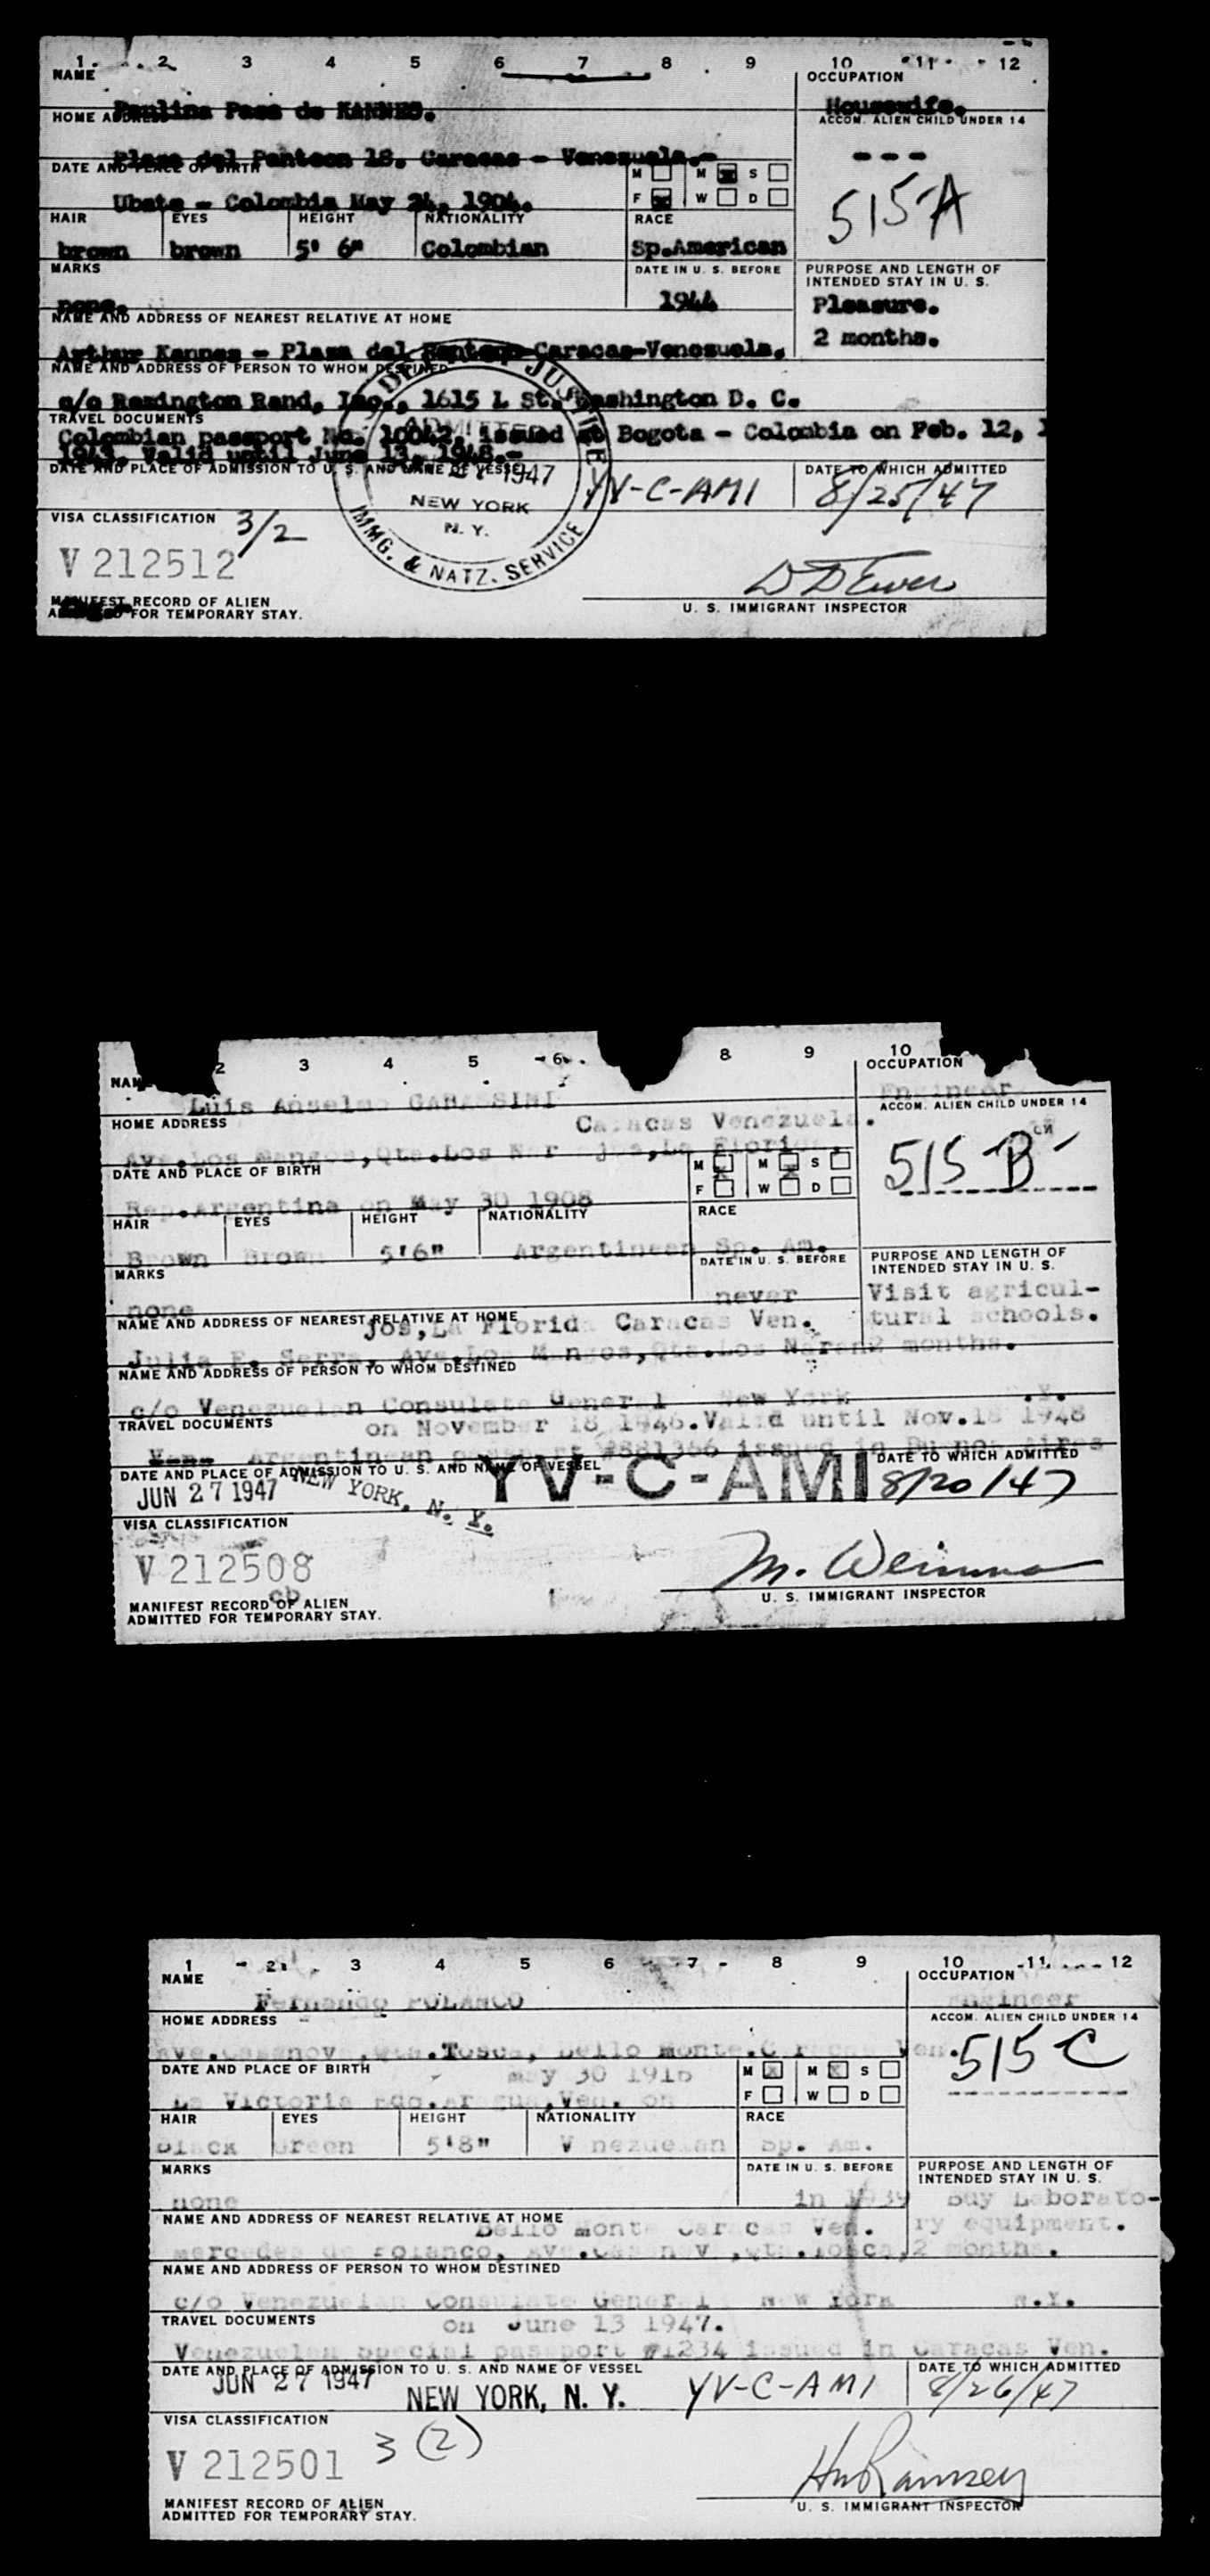 1 2 3 4 5 6 7 8 9 10 11 12
NAME OCCUPATION
Paulina Paez de KANNES. Housewife.
HOME ADDRESS ACCOM. ALIEN CHILD UNDER 14
Plaza del Panteon 18. Caracas - Venezuela.- ---
DATE AND PLACE OF BIRTH M M S
Ubate - Colombia May 24, 1904. F W D 515-A
HAIR EYES HEIGHT NATIONALITY RACE
brown brown 5' 6" Colombian Sp.American
MARKS DATE IN U. S. BEFORE PURPOSE AND LENGTH OF INTENDED STAY IN U. S.
none. 1944 Pleasure.
NAME AND ADDRESS OF NEAREST RELATIVE AT HOME 2 months.
Arthur Kannes - Plaza del Panteon-Caracas-Venezuela.
NAME AND ADDRESS OF PERSON TO WHOM DESTINED
c/o Remington Rand, Inc., 1615 L St. Washington D. C.
TRAVEL DOCUMENTS
Colombian passport No. 10042, issued at Bogota - Colombia on Feb. 12,
1943. Valid until June 13, 1948.-
DATE AND PLACE OF ADMISSION TO U. S. AND NAME OF VESSEL DATE TO WHICH ADMITTED
JUSTICE ADMITTED 1947 NEW YORK N. Y. IMMG. & NATZ. SERVICE
YV-C-AMI 8/25/47
VISA CLASSIFICATION 3/2
V 212512
MANIFEST RECORD OF ALIEN
FOR TEMPORARY STAY. U. S. IMMIGRANT INSPECTOR
2 3 4 5 6 8 9 10
NAME OCCUPATION
Luis Anselmo GARASSINI Engineer
HOME ADDRESS Caracas Venezuela. ACCOM. ALIEN CHILD UNDER 14
Ave.Los Mangos,Qta.Los Naranjos,La Florida,
DATE AND PLACE OF BIRTH M M S 515-B
Rep.Argentina on May 30 1908 F W D
HAIR EYES HEIGHT NATIONALITY RACE
Brown Brown 5'6" Argentinean Sp. Am.
MARKS DATE IN U. S. BEFORE PURPOSE AND LENGTH OF INTENDED STAY IN U. S.
none never Visit agricul-
NAME AND ADDRESS OF NEAREST RELATIVE AT HOME jos,La Florida Caracas Ven. tural schools.
Julia F. Serra, Ave.Los Mangos,Qta.Los Naran 2 months.
NAME AND ADDRESS OF PERSON TO WHOM DESTINED
c/o Venezuelan Consulate General New York N.Y.
TRAVEL DOCUMENTS on November 18 1946.Valid until Nov.18 1948
Argentinean passport #881366 issued in Buenos Aires
DATE AND PLACE OF ADMISSION TO U. S. AND NAME OF VESSEL DATE TO WHICH ADMITTED
JUN 27 1947 NEW YORK, N. Y. YV-C-AMI 8/20/47
VISA CLASSIFICATION
V 212508
MANIFEST RECORD OF ALIEN
ADMITTED FOR TEMPORARY STAY. U. S. IMMIGRANT INSPECTOR
1 2 3 4 5 6 7 8 9 10 11 12
NAME OCCUPATION
Fernando POLANCO Engineer
HOME ADDRESS ACCOM. ALIEN CHILD UNDER 14
Ave.Casanova,Qta.Tosca, Bello Monte.Caracas Ven. 515 C
DATE AND PLACE OF BIRTH may 30 1916 M M S
La Victoria Edo.Aragua,Ven. on F W D
HAIR EYES HEIGHT NATIONALITY RACE
Black Green 5'8" Venezuelan Sp. Am.
MARKS DATE IN U. S. BEFORE PURPOSE AND LENGTH OF INTENDED STAY IN U. S.
none in 1939 Buy Laborato-
NAME AND ADDRESS OF NEAREST RELATIVE AT HOME Bello monte Caracas Ven. ry equipment.
mercedes de Polanco, Ave.Casanova,Qta.Tosca, 2 months.
NAME AND ADDRESS OF PERSON TO WHOM DESTINED
c/o Venezuelan Consulate General New York N.Y.
TRAVEL DOCUMENTS on June 13 1947.
Venezuelan Special passport #1234 issued in Caracas Ven.
DATE AND PLACE OF ADMISSION TO U. S. AND NAME OF VESSEL DATE TO WHICH ADMITTED
JUN 27 1947 NEW YORK, N. Y. YV-C-AMI 8/26/47
VISA CLASSIFICATION
V 212501 3 (2)
MANIFEST RECORD OF ALIEN
ADMITTED FOR TEMPORARY STAY. U. S. IMMIGRANT INSPECTOR